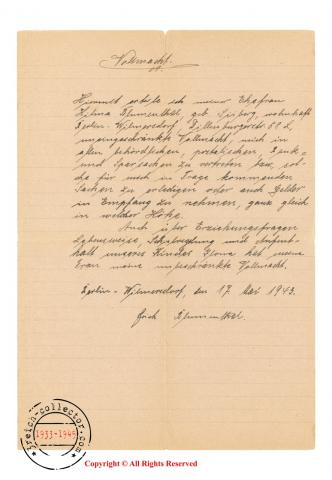 Vollmacht.
Hiermit erteile ich meiner Ehefrau
Helma Blumenthal, geb. wohnhaft
Berlin-Wilmersdorf,
uneingeschränkte Vollmacht, mich in
allen behördlichen, postalischen, Bank-
und Sparsachen zu vertreten bzw. sol-
che für mich in Frage kommenden
Sachen zu erledigen oder auch Gelder
in Empfang zu nehmen, ganz gleich
in welcher Höhe.
Auch über Erziehungsfragen
Lebensweise, Schulung und Aufent-
halt unseres Kindes hat meine
Frau meine unbeschränkte Vollmacht.
Berlin-Wilmersdorf, den 17. Mai 1943.
Erich Blumenthal.
reich-collector.com
1933-1945
Copyright © All Rights Reserved